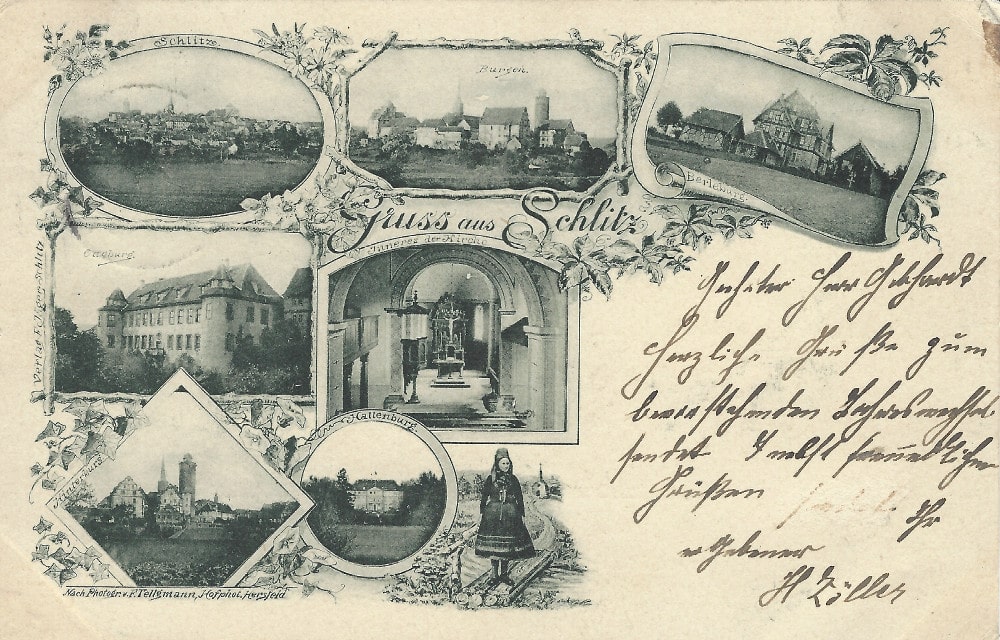 Schlitz.
Burgen.
Berleburg.
Gruss aus Schlitz
Ottoburg.
Inneres der Kirche
Verlag
Schlitz
Hallenburg.
Hinterburg.
Nach Photogr. v. F. Tellgmann, Hofphot. Hersfeld
Geehrter Herr Gebhardt
Herzliche Grüße zum
bevorstehenden Jahreswechsel
sendet nebst freundlichen
Grüßen
Ihr
ergebener
H Zöller